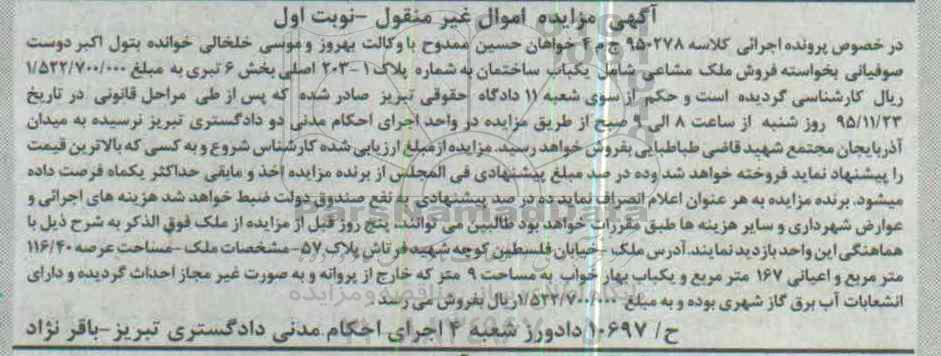 آگهی مزایده اموال غیر منقول -نوبت اول
در خصوص پرونده اجرائی کلاسه ۹۵۰۲۷۸ ج م ۴ خواهان حسین ممدوح با وکالت بهروز و موسی خلخالی خوانده بتول اکبر دوست
صوفیانی بخواسته فروش ملک مشاعی شامل یکباب ساختمان به شماره پلاک ۱-۲۰۳ اصلی بخش ۶ تبری به مبلغ ۱/۵۲۲/۷۰۰/۰۰۰
ریال کارشناسی گردیده است و حکم از سوی شعبه ۱۱ دادگاه حقوقی تبریز صادر شده که پس از طی مراحل قانونی در تاریخ
۹۵/۱۱/۲۳ روز شنبه از ساعت ۸ الی ۹ صبح از طریق مزایده در واحد اجرای احکام مدنی دو دادگستری تبریز نرسیده به میدان
آذربایجان مجتمع شهید قاضی طباطبایی بفروش خواهد رسید. مزایده از مبلغ ارزیابی شده کارشناس شروع و به کسی که بالاترین قیمت
را پیشنهاد نماید فروخته خواهد شد وده در صد مبلغ پیشنهادی فی المجلس از برنده مزایده اخذ و مابقی حداکثر یکماه فرصت داده
میشود. برنده مزایده به هر عنوان اعلام انصراف نماید ده در صد پیشنهادی به نفع صندوق دولت ضبط خواهد شد هزینه های اجرائی و
عوارض شهرداری و سایر هزینه ها طبق مقررات خواهد بود طالبین می توانند پنج روز قبل از مزایده از ملک فوق الذکر به شرح ذیل با
هماهنگی این واحد بازدید نمایند. آدرس ملک -خیابان فلسطین کوچه شهید فر تاش پلاک ۵۷- مشخصات ملک -مساحت عرصه ۱۱۶/۴۰
متر مربع و اعیانی ۱۶۷ متر مربع و یکباب بهار خواب به مساحت ۹ متر که خارج از پروانه و به صورت غیر مجاز احداث گردیده و دارای
انشعابات آب برق گاز شهری بوده و به مبلغ ۱/۵۲۲/۷۰۰/۰۰۰ریال بفروش می رسد
ح/ ۱۰۶۹۷ دادورز شعبه ۴ اجرای احکام مدنی دادگستری تبریز-باقر نژاد